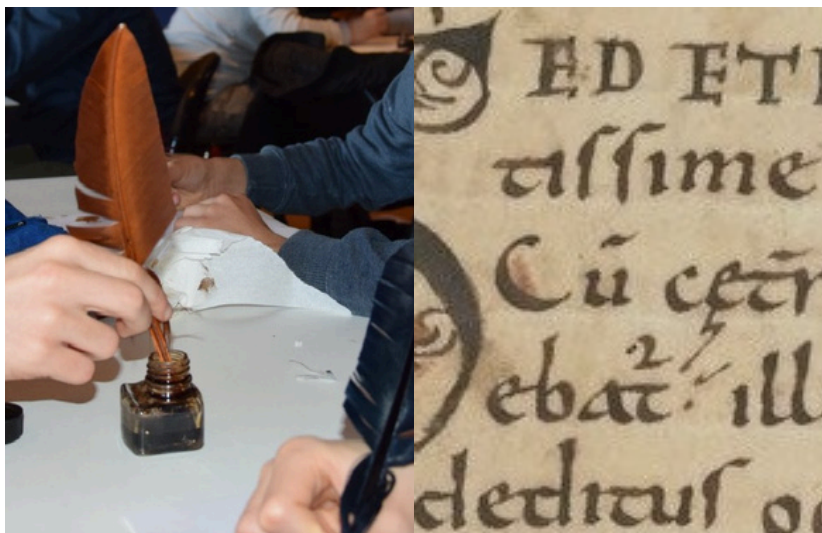 ED ETI
tissime
Cū cęt̄r
ebat᷑ ill
deditus